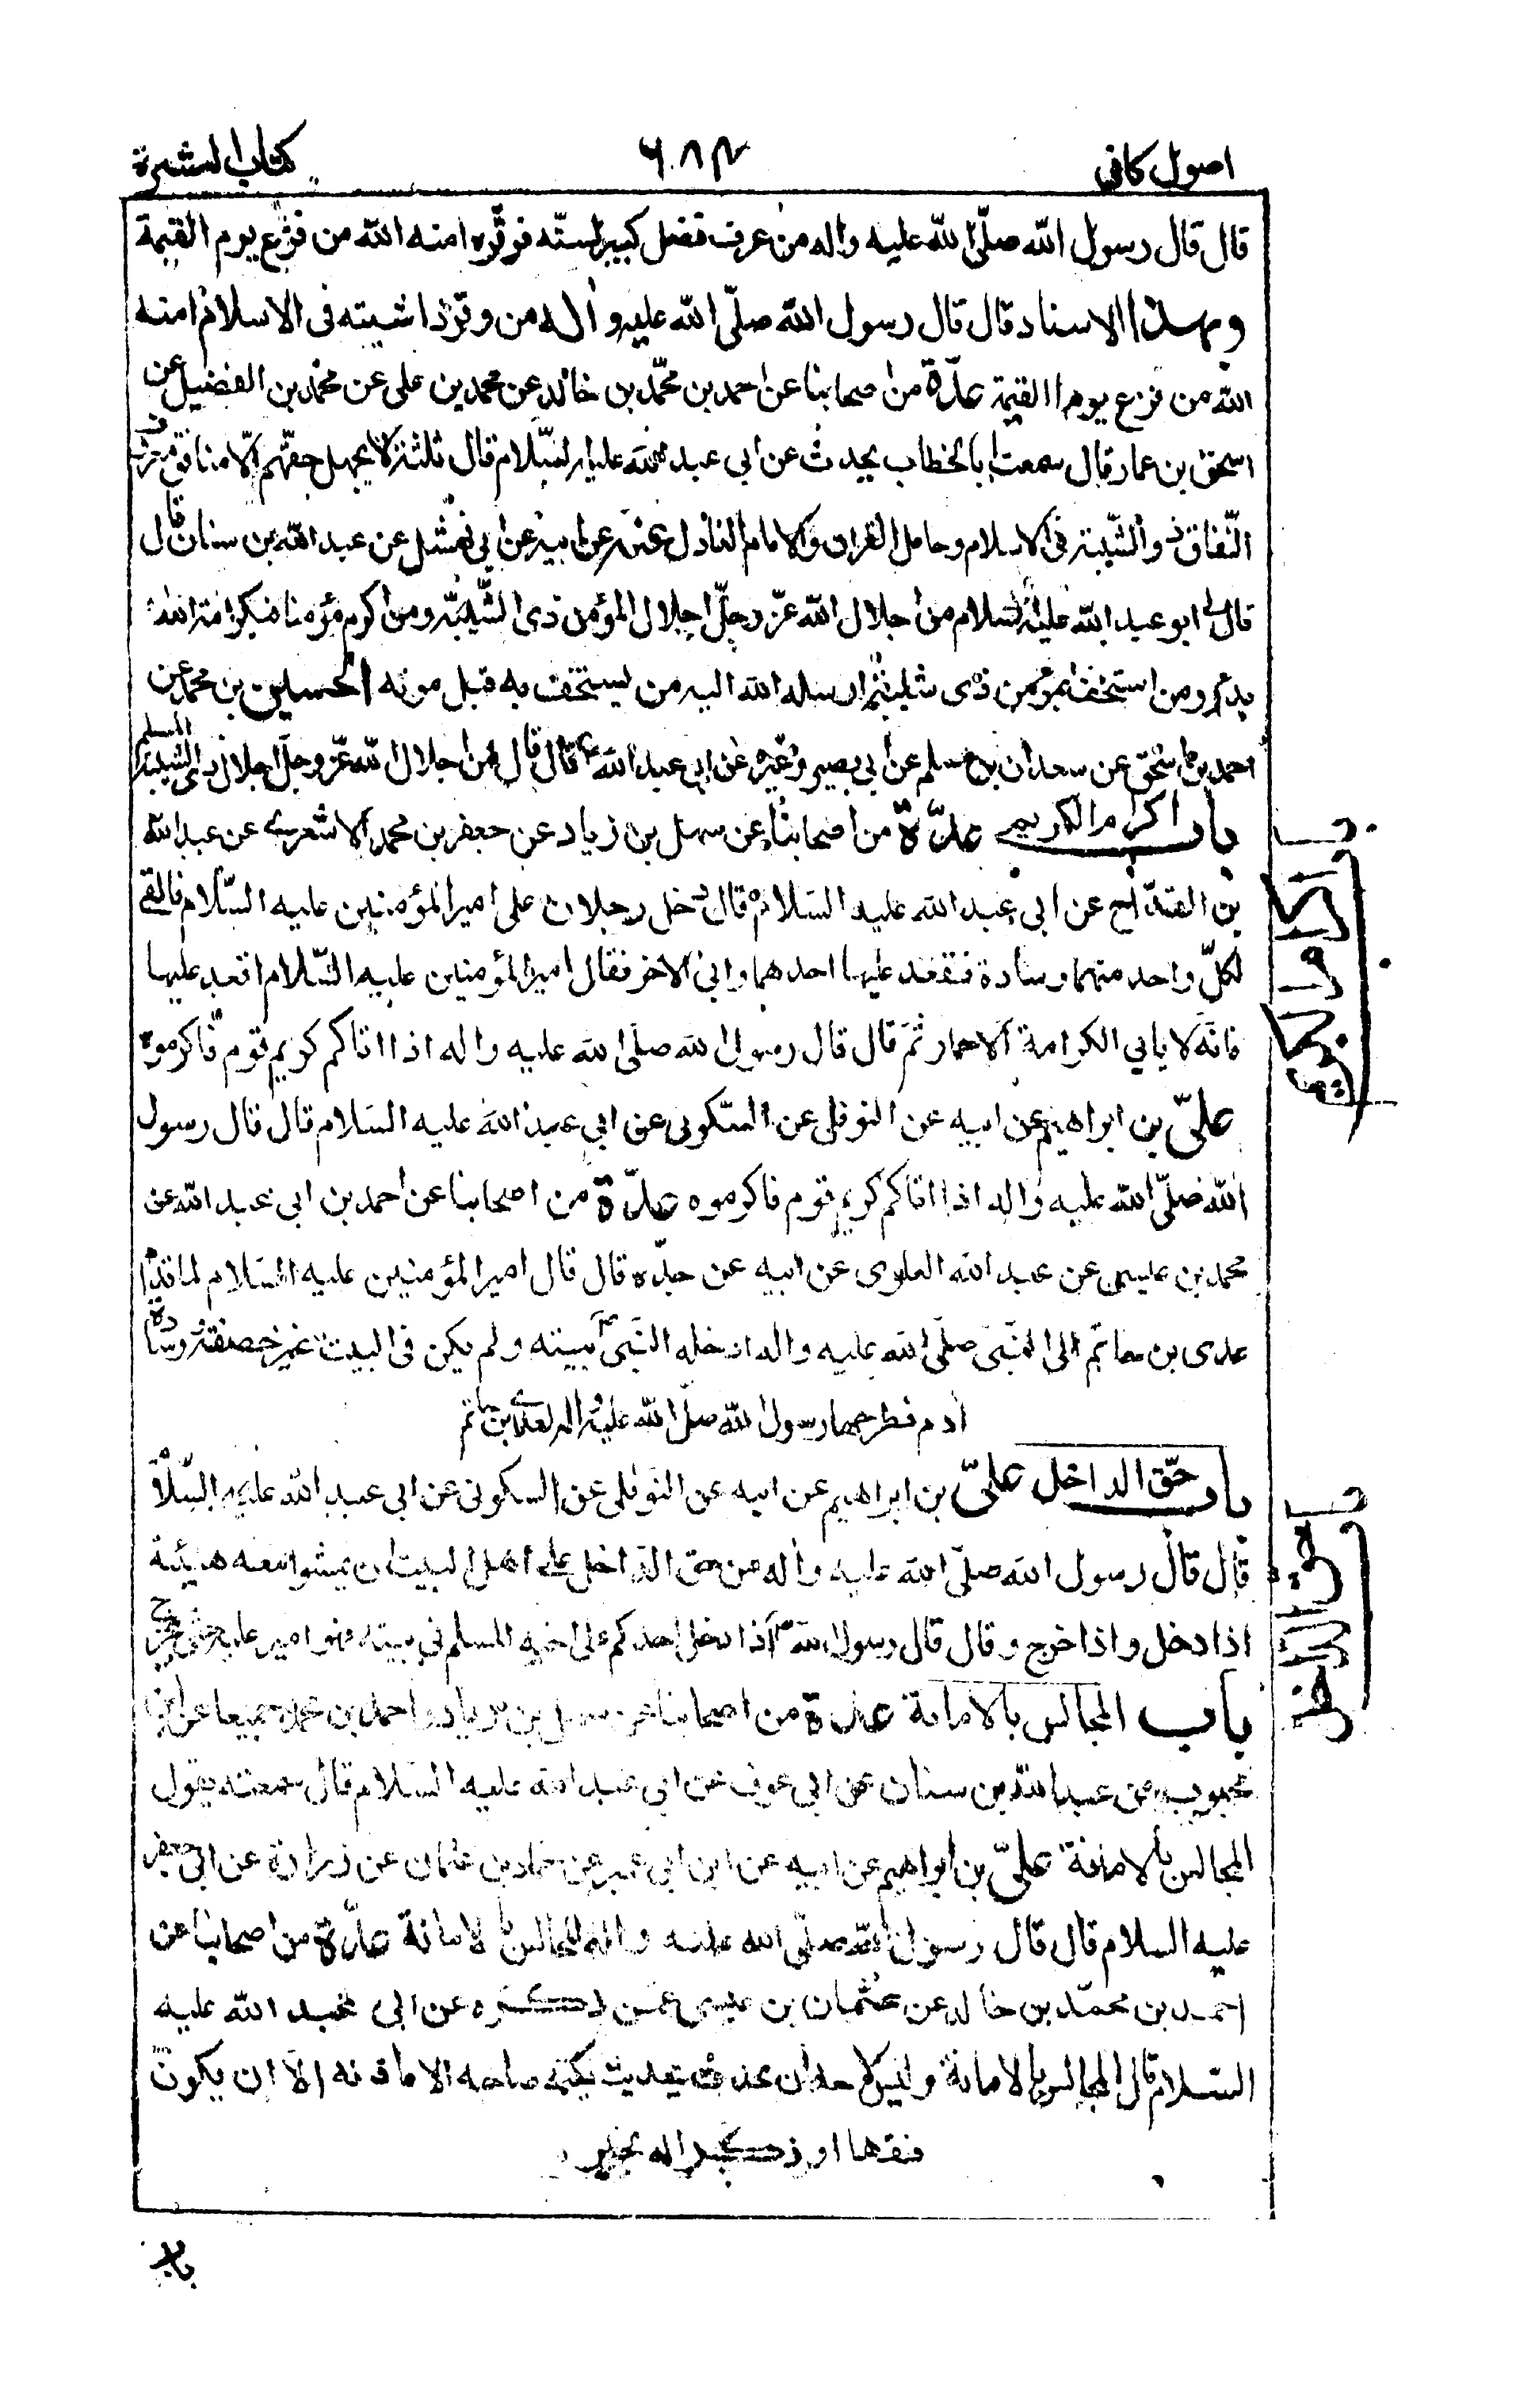 اصول كافى
٦٨٢
كتاب العشرة
قال قال رسول الله صلّى الله عليه واله من عرف فضل كبير لسنّه فوقّره امنه الله من فزع يوم القيمة
وبهذا الاسناد قال قال رسول الله صلّى الله عليه واله من وقّر ذا شيبته فى الاسلام امنه
الله من فزع يوم القيمة عدّة من اصحابنا عن احمد بن محمّد بن خالد عن محمد بن على عن محمد بن الفضيل عن
اسحق بن عمار قال سمعت ابا الخطاب يحدث عن ابى عبد الله عليه السّلام قال ثلثة لا يجهل حقّهم الّا منافق معروف
النّفاق ذو الشّيبة فى الاسلام وحامل القران والامام العادل عنه عن ابيه عن ابى نهشل عن عبد الله بن سنان قال
قال لى ابو عبد الله عليه السلام من اجلال الله عزّ وجلّ اجلال المؤمن ذى الشّيبة ومن اكرم مؤمنا فبكرامة الله
بدء ومن استخف بمؤمن ذى شيبة ارسل الله اليه من يستخف به قبل موته الحسين بن محمد عن
احمد بن اسحق عن سعدان بن مسلم عن ابى بصير وغيره عن ابى عبد الله ع قال قال من اجلال الله عزّ وجلّ اجلال ذى الشيبة المسلم
باب اكرام الكريم عدّة من اصحابنا عن سهل بن زياد عن جعفر بن محمد الاشعرى عن عبد الله
بن القدّاح عن ابى عبد الله عليه السلام قال دخل رجلان على امير المؤمنين عليه السّلام فالقى
لكلّ واحد منهما وسادة فقعد عليها احدهما وابى الاخر فقال امير المؤمنين عليه السّلام اقعد عليها
فانّه لا يابى الكرامة الا حمار ثمّ قال قال رسول الله صلّى الله عليه واله اذا اتاكم كريم قوم فاكرموه
علىّ بن ابراهيم عن ابيه عن النوفلى عن السّكونى عن ابى عبد الله عليه السّلام قال قال رسول
الله صلّى الله عليه واله اذا اتاكم كريم قوم فاكرموه عدّة من اصحابنا عن احمد بن ابى عبد الله عن
محمد بن عيسى عن عبد الله العلوى عن ابيه عن جدّه قال قال امير المؤمنين عليه السّلام لما قدم
عدى بن حاتم الى النّبى صلّى الله عليه واله ادخله النّبى ص بيته ولم يكن فى البيت غير خصفة ووسادة
ادم فطرحها رسول الله صلّى الله عليه واله لعدى بن حاتم
باب حقّ الداخل علىّ بن ابراهيم عن ابيه عن النوفلى عن السكونى عن ابى عبد الله عليه السّلام
قال قال رسول الله صلّى الله عليه واله من حق الداخل على اهل البيت ان يمشوا معه هنيئة
اذا دخل واذا خرج وقال قال رسول الله ص اذا دخل احدكم على اخيه المسلم فى بيته فهو امير عليه حتى يخرج
باب المجالس بالامانة عدة من اصحابنا عن سهل بن زياد واحمد بن محمد جميعا عن ابن
محبوب عن عبد الله بن سنان عن ابى عوف عن ابى عبد الله عليه السّلام قال سمعته يقول
المجالس بالامانة علىّ بن ابراهيم عن ابيه عن ابن ابى عمير عن حماد بن عثمان عن زرارة عن ابى جعفر
عليه السلام قال قال رسول الله صلّى الله عليه واله المجالس بالامانة عدّة من اصحابنا عن
احمد بن محمّد بن خالد عن عثمان بن عيسى عمّن ذكره عن ابى عبد الله عليه
السّلام قال المجالس بالامانة وليس لاحد ان يحدث بحديث يكتمه صاحبه الا باذنه الّا ان يكون
فقها او ذكرا له بخير
باب اكرام الكريم
باب حق الداخل
باب